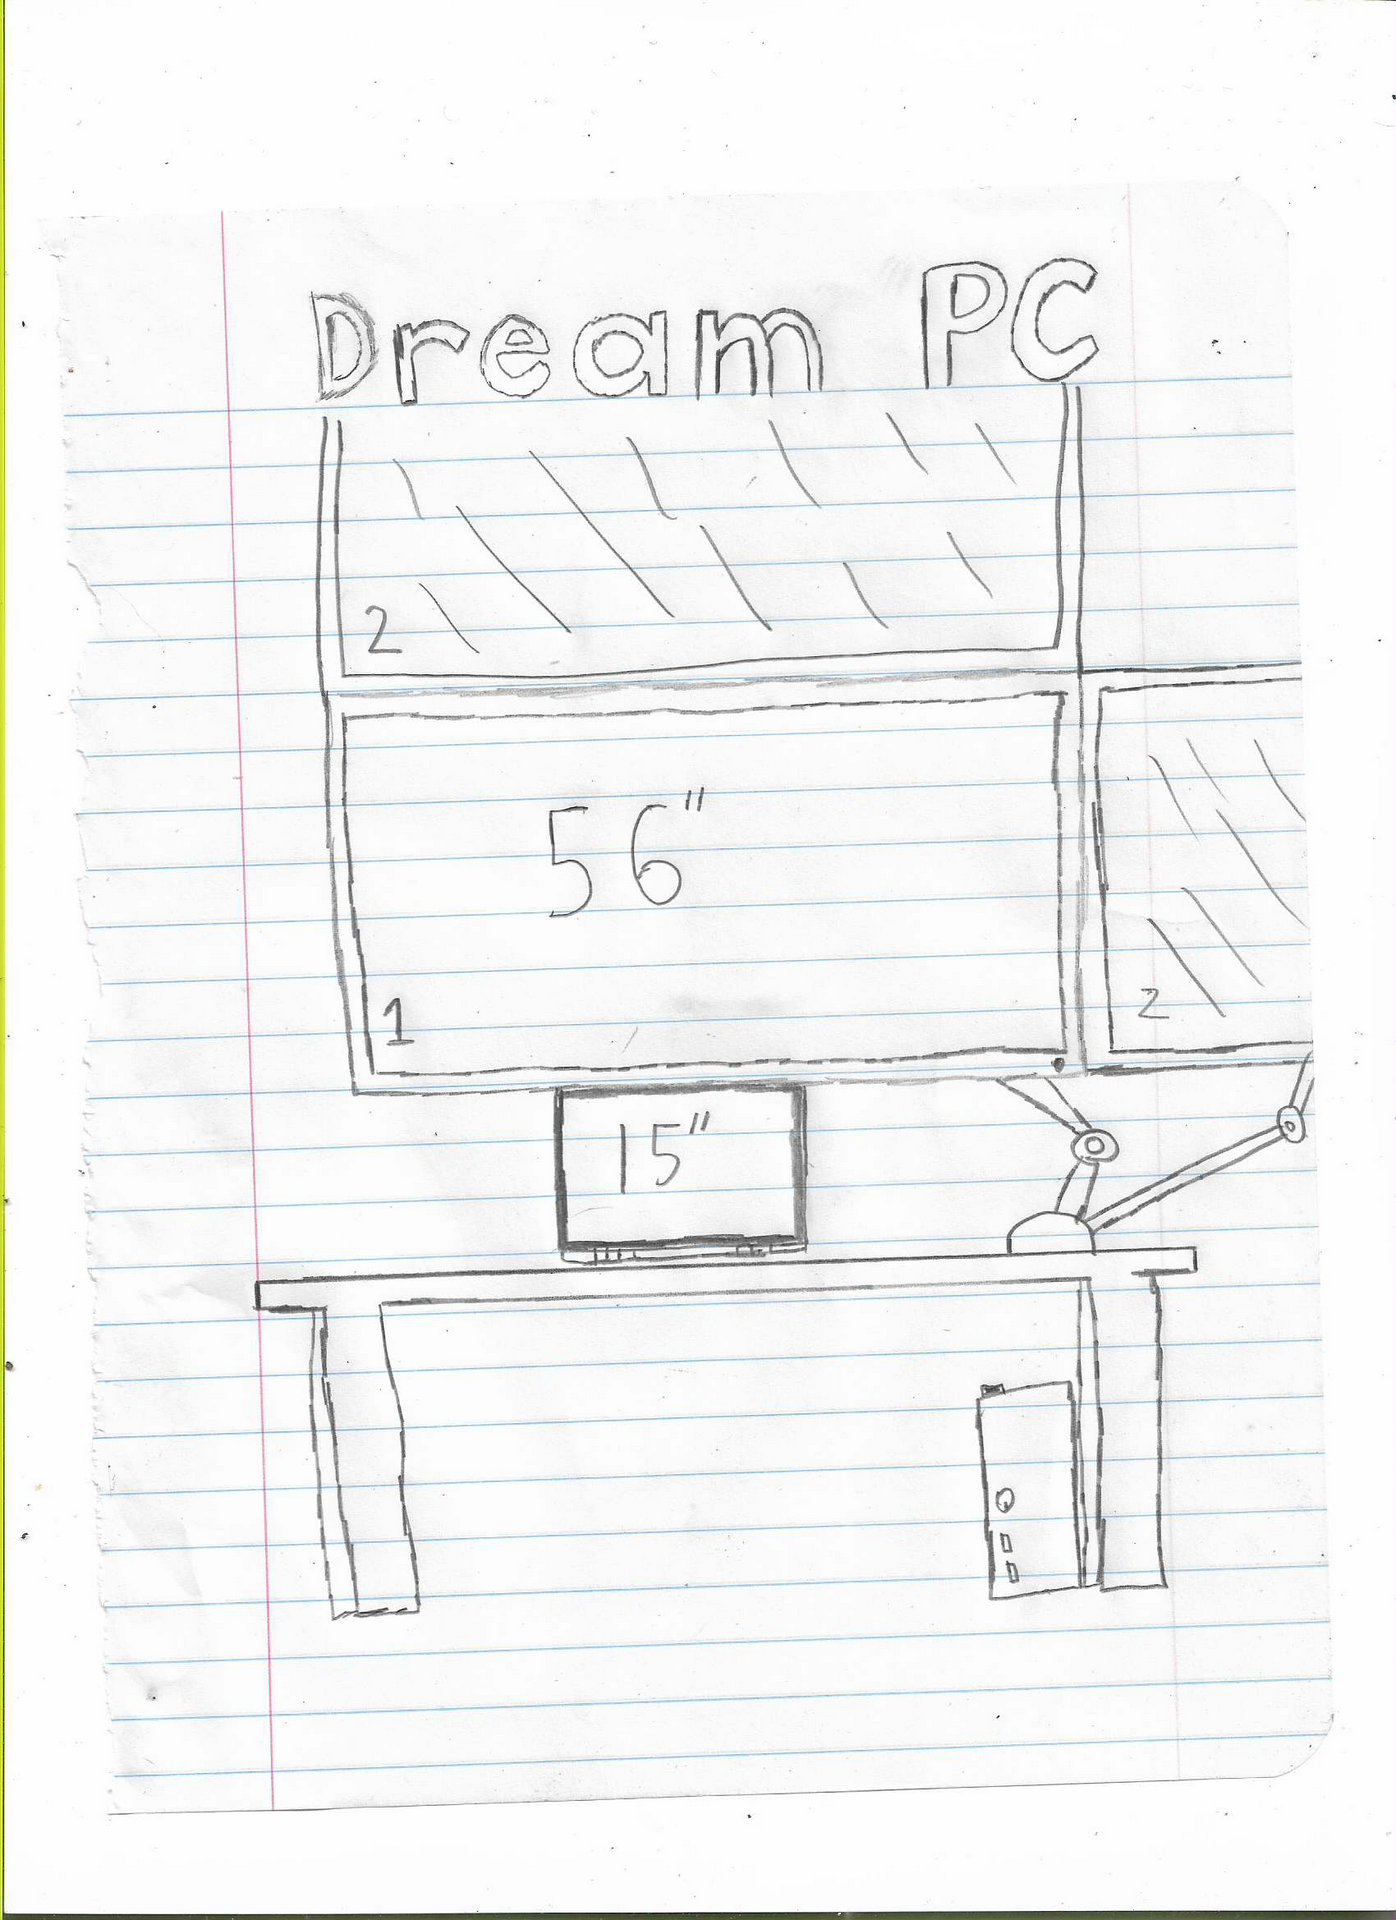 Dream PC
2
56"
1
2
15"